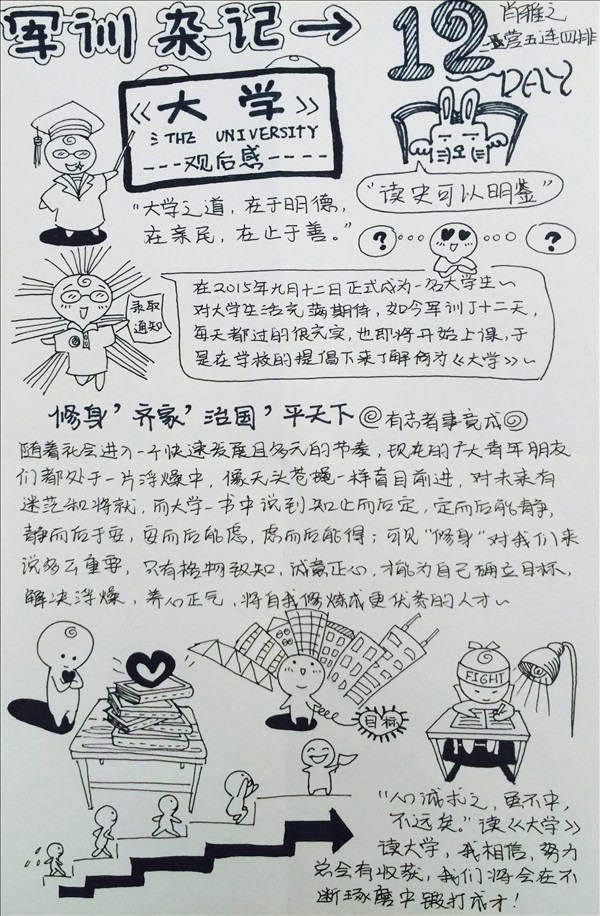 军训杂记→
12
DAY
肖雅之
二营五连四排
《大学》
THE UNIVERSITY
---观后感----
"大学之道，在于明德，
在亲民，在止于善。"
"读史可以明鉴"
? ?
录取
通知
在2015年九月十二日正式成为一名大学生~
对大学生活充满期待，如今军训了十二天，
每天都过的很充实，也即将开始上课，于
是在学校的提倡下来了解何为《大学》~
修身'齐家'治国'平天下
有志者事竟成
随着社会进入一个快速发展且多元的节奏，现在的广大青年朋友
们都处于一片浮燥中，像无头苍蝇一样盲目前进，对未来有
迷茫和将就，而大学一书中说到知止而后定，定而后能静，
静而后于安，安而后能虑，虑而后能得；可见"修身"对我们来
说多么重要，只有格物致知，诚意正心，才能为自己确立目标，
解决浮燥，养心正气，将自我修炼成更优秀的人才~
目标
FIGHT
"心诚求之，虽不中，
不远矣。"读《大学》
读大学，我相信，努力
总会有收获，我们将会在不
断琢磨中锻打成才！